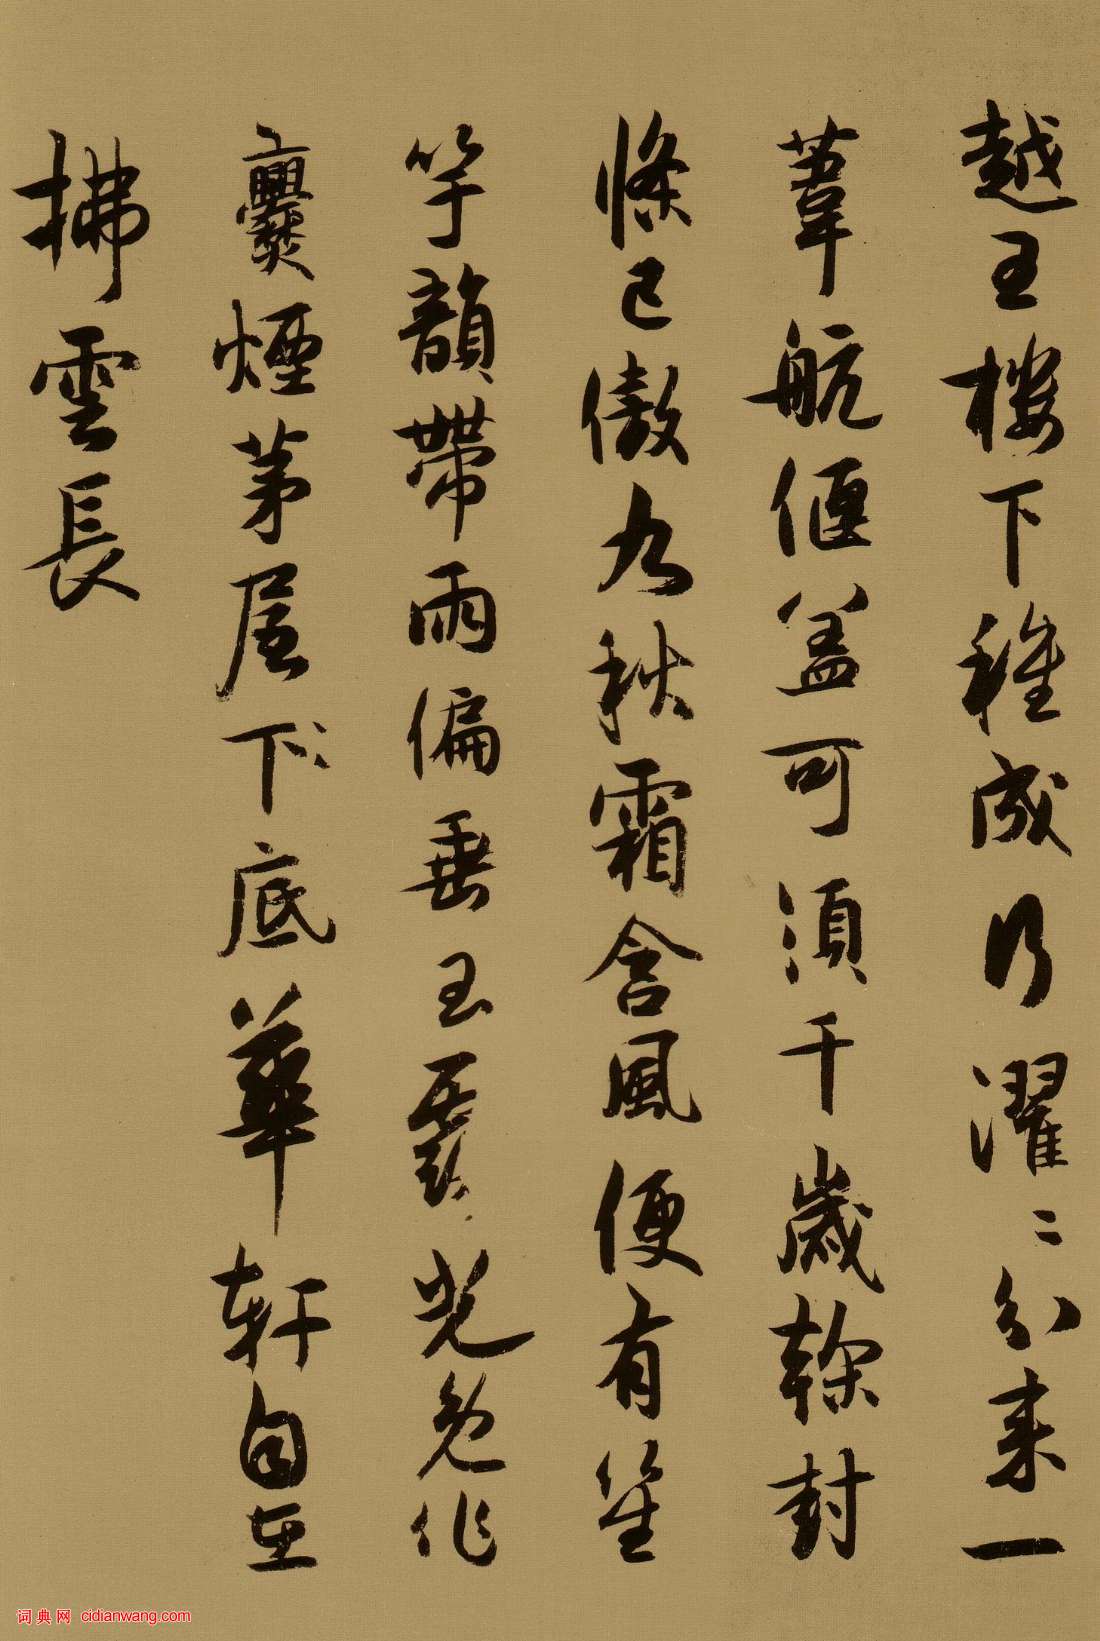 越王樓下種成行濯〻分來一
葦航偃蓋可須千歲榦封
條已傲九秋霜含風便有笙
竽韻帶雨偏垂玉露光免作
爨煙茅屋下〻底華軒自在
拂雲長
词典网 cidianwang.com